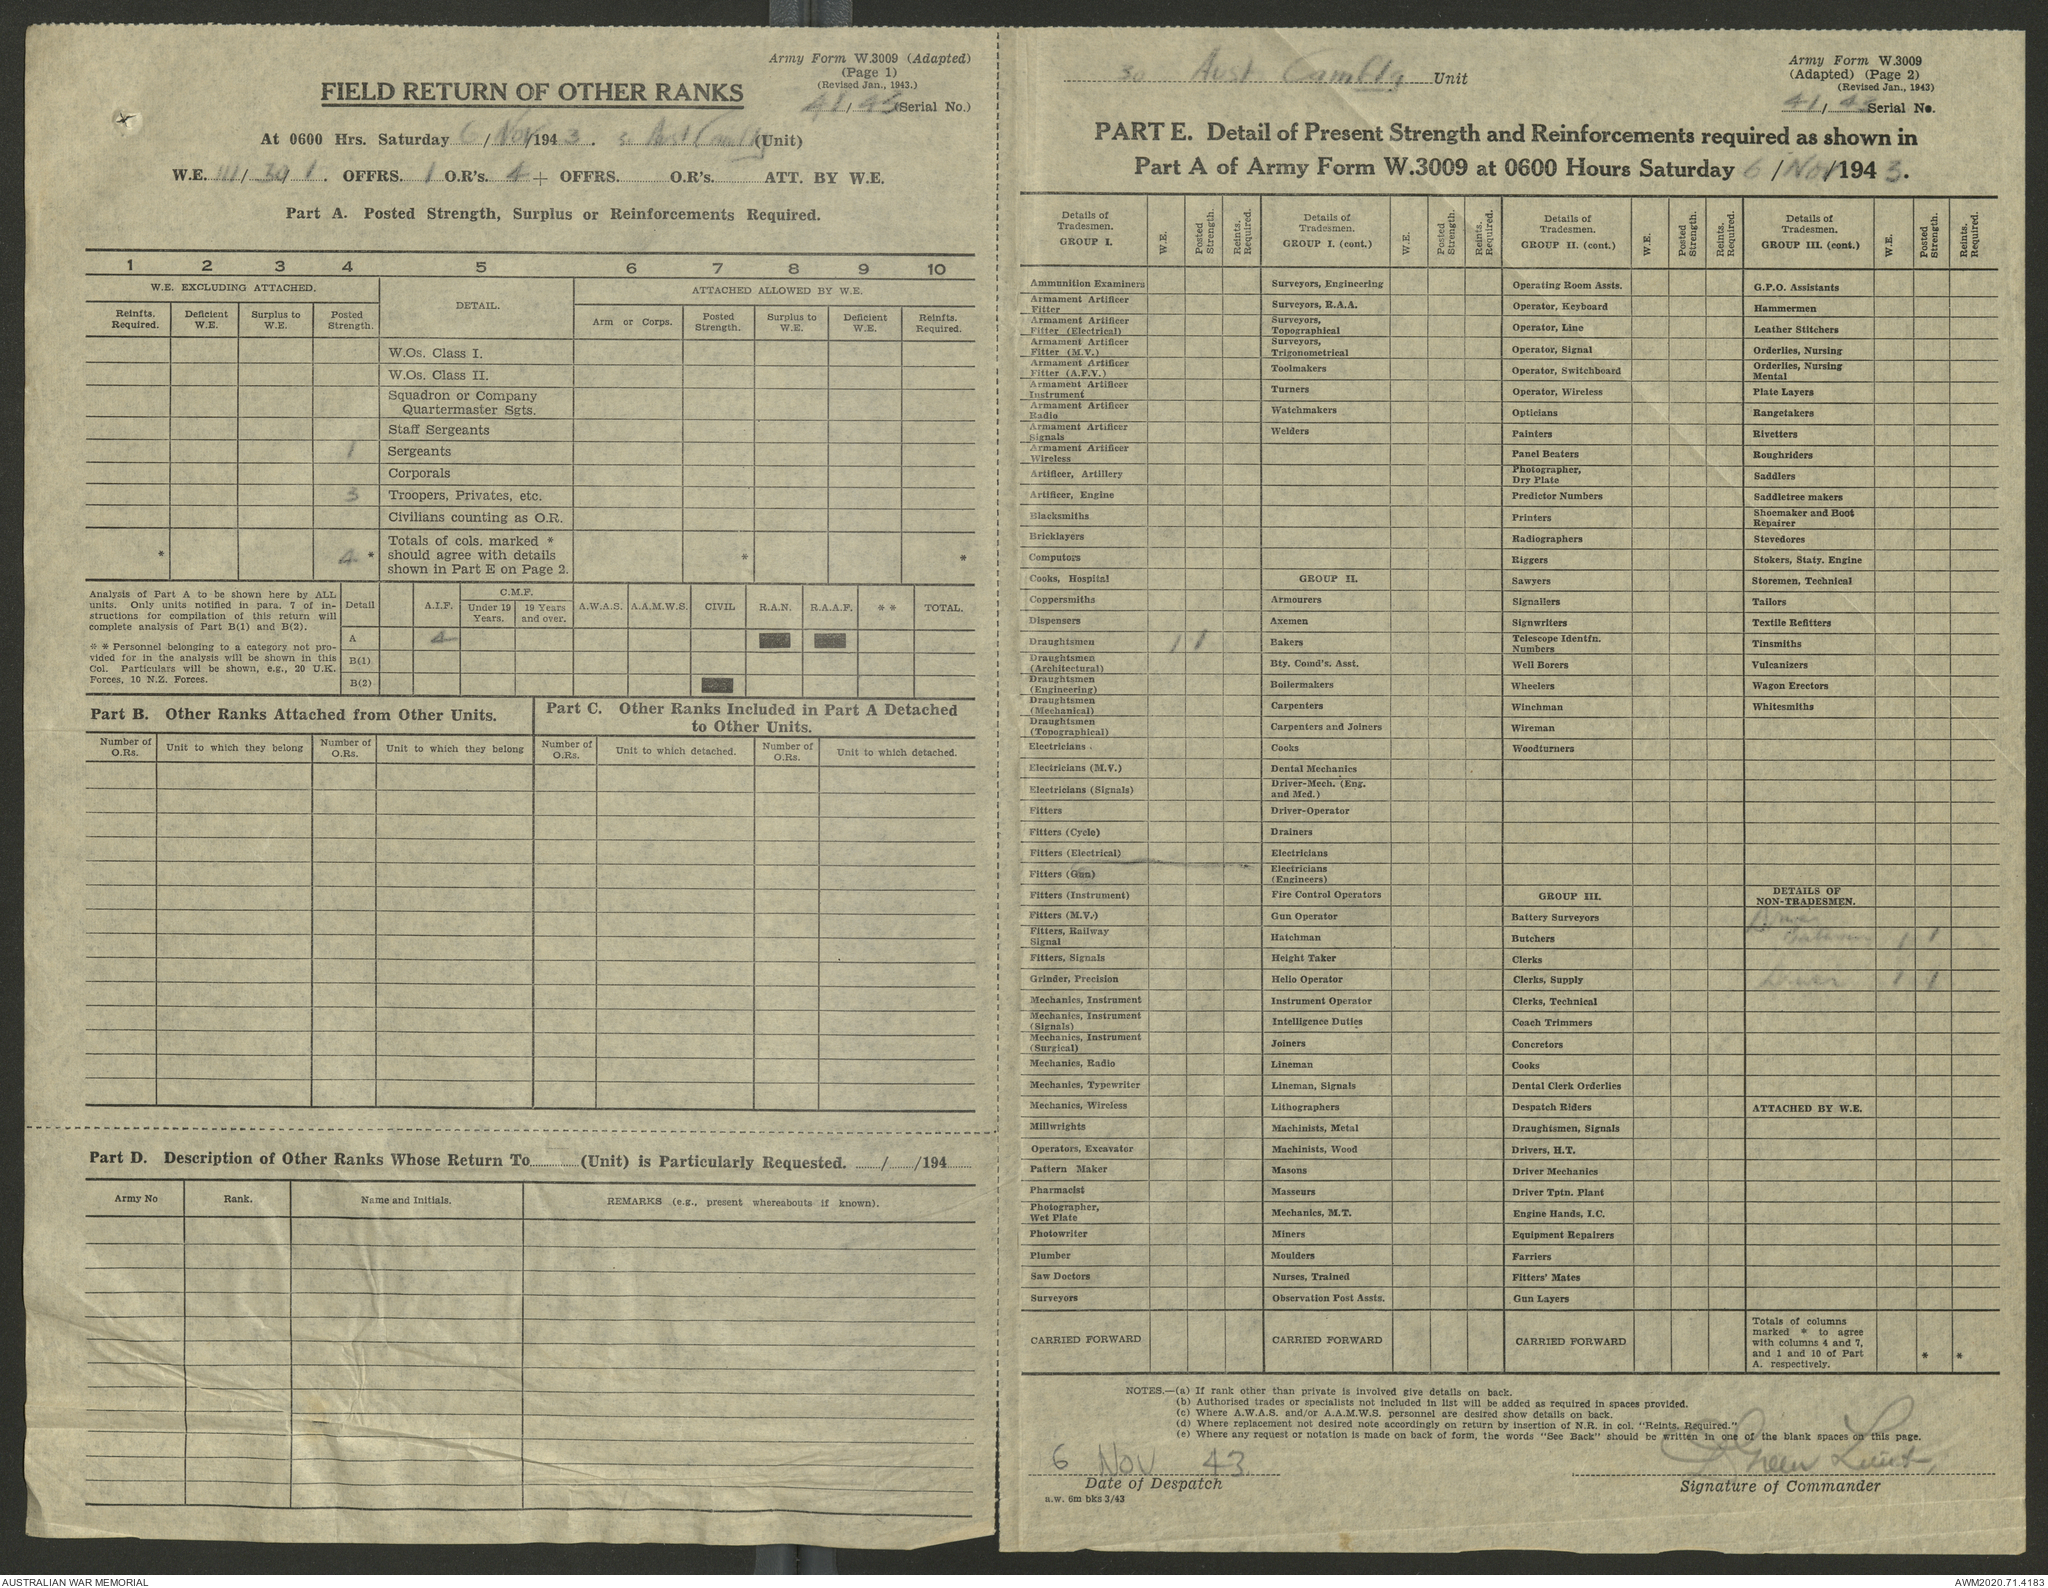 Army Form W.3009 (Adapted)
(Page 1)
(Revised Jan., 1943.)
FIELD RETURN OF OTHER RANKS
41/43 (Serial No.)
At 0600 Hrs. Saturday 6/Nov/1943. (Unit)
W.E. 111/391. OFFRS. 1 O.R's. 4 + OFFRS. O.R's. ATT. BY W.E.
Part A. Posted Strength, Surplus or Reinforcements Required.
1 2 3 4 5 6 7 8 9 10
W.E. EXCLUDING ATTACHED. DETAIL. ATTACHED ALLOWED BY W.E.
Reinfts. Required. Deficient W.E. Surplus to W.E. Posted Strength. Arm or Corps. Posted Strength. Surplus to W.E. Deficient W.E. Reinfts. Required.
W.Os. Class I.
W.Os. Class II.
Squadron or Company
Quartermaster Sgts.
Staff Sergeants
1 Sergeants
Corporals
3 Troopers, Privates, etc.
Civilians counting as O.R.
Totals of cols. marked *
* 4 * should agree with details * *
shown in Part E on Page 2.
Analysis of Part A to be shown here by ALL
units. Only units notified in para. 7 of in-
structions for compilation of this return will
complete analysis of Part B(1) and B(2).
* * Personnel belonging to a category not pro-
vided for in the analysis will be shown in this
Col. Particulars will be shown, e.g., 20 U.K.
Forces, 10 N.Z. Forces.
Detail A.I.F. C.M.F. Under 19 Years. 19 Years and over. A.W.A.S. A.A.M.W.S. CIVIL R.A.N. R.A.A.F. * * TOTAL.
A 4
B(1)
B(2)
Part B. Other Ranks Attached from Other Units.
Part C. Other Ranks Included in Part A Detached
to Other Units.
Number of O.Rs. Unit to which they belong Number of O.Rs. Unit to which they belong Number of O.Rs. Unit to which detached. Number of O.Rs. Unit to which detached.
Part D. Description of Other Ranks Whose Return To (Unit) is Particularly Requested. / /194
Army No Rank. Name and Initials. REMARKS (e.g., present whereabouts if known).
30 Aust Unit
Army Form W.3009
(Adapted) (Page 2)
(Revised Jan., 1943)
41/43 Serial No.
PART E. Detail of Present Strength and Reinforcements required as shown in
Part A of Army Form W.3009 at 0600 Hours Saturday 6/Nov/1943.
Details of Tradesmen. GROUP I. W.E. Posted Strength. Reints. Required.
Ammunition Examiners
Armament Artificer Fitter
Armament Artificer Fitter (Electrical)
Armament Artificer Fitter (M.V.)
Armament Artificer Fitter (A.F.V.)
Armament Artificer Instrument
Armament Artificer Radio
Armament Artificer Signals
Armament Artificer Wireless
Artificer, Artillery
Artificer, Engine
Blacksmiths
Bricklayers
Computors
Cooks, Hospital
Coppersmiths
Dispensers
Draughtsmen 1 1
Draughtsmen (Architectural)
Draughtsmen (Engineering)
Draughtsmen (Mechanical)
Draughtsmen (Topographical)
Electricians
Electricians (M.V.)
Electricians (Signals)
Fitters
Fitters (Cycle)
Fitters (Electrical)
Fitters (Gun)
Fitters (Instrument)
Fitters (M.V.)
Fitters, Railway Signal
Fitters, Signals
Grinder, Precision
Mechanics, Instrument
Mechanics, Instrument (Signals)
Mechanics, Instrument (Surgical)
Mechanics, Radio
Mechanics, Typewriter
Mechanics, Wireless
Millwrights
Operators, Excavator
Pattern Maker
Pharmacist
Photographer, Wet Plate
Photowriter
Plumber
Saw Doctors
Surveyors
CARRIED FORWARD
Details of Tradesmen. GROUP I. (cont.) W.E. Posted Strength. Reints. Required.
Surveyors, Engineering
Surveyors, R.A.A.
Surveyors, Topographical
Surveyors, Trigonometrical
Toolmakers
Turners
Watchmakers
Welders
GROUP II.
Armourers
Axemen
Bakers
Bty. Comd's. Asst.
Boilermakers
Carpenters
Carpenters and Joiners
Cooks
Dental Mechanics
Driver-Mech. (Eng. and Med.)
Driver-Operator
Drainers
Electricians
Electricians (Engineers)
Fire Control Operators
Gun Operator
Hatchman
Height Taker
Helio Operator
Instrument Operator
Intelligence Duties
Joiners
Lineman
Lineman, Signals
Lithographers
Machinists, Metal
Machinists, Wood
Masons
Masseurs
Mechanics, M.T.
Miners
Moulders
Nurses, Trained
Observation Post Assts.
CARRIED FORWARD
Details of Tradesmen. GROUP II. (cont.) W.E. Posted Strength. Reints. Required.
Operating Room Assts.
Operator, Keyboard
Operator, Line
Operator, Signal
Operator, Switchboard
Operator, Wireless
Opticians
Painters
Panel Beaters
Photographer, Dry Plate
Predictor Numbers
Printers
Radiographers
Riggers
Sawyers
Signallers
Signwriters
Telescope Identfn. Numbers
Well Borers
Wheelers
Winchman
Wireman
Woodturners
GROUP III.
Battery Surveyors
Butchers
Clerks
Clerks, Supply
Clerks, Technical
Coach Trimmers
Concretors
Cooks
Dental Clerk Orderlies
Despatch Riders
Draughtsmen, Signals
Drivers, H.T.
Driver Mechanics
Driver Tptn. Plant
Engine Hands, I.C.
Equipment Repairers
Farriers
Fitters' Mates
Gun Layers
CARRIED FORWARD
Details of Tradesmen. GROUP III. (cont.) W.E. Posted Strength. Reints. Required.
G.P.O. Assistants
Hammermen
Leather Stitchers
Orderlies, Nursing
Orderlies, Nursing Mental
Plate Layers
Rangetakers
Rivetters
Roughriders
Saddlers
Saddletree makers
Shoemaker and Boot Repairer
Stevedores
Stokers, Staty. Engine
Storemen, Technical
Tailors
Textile Refitters
Tinsmiths
Vulcanizers
Wagon Erectors
Whitesmiths
DETAILS OF NON-TRADESMEN.
Driver
Batman 1 1
Driver 1 1
ATTACHED BY W.E.
Totals of columns
marked * to agree
with columns 4 and 7,
and 1 and 10 of Part
A. respectively. * *
NOTES.—(a) If rank other than private is involved give details on back.
(b) Authorised trades or specialists not included in list will be added as required in spaces provided.
(c) Where A.W.A.S. and/or A.A.M.W.S. personnel are desired show details on back.
(d) Where replacement not desired note accordingly on return by insertion of N.R. in col. "Reints. Required."
(e) Where any request or notation is made on back of form, the words "See Back" should be written in one of the blank spaces on this page.
6 Nov 43. Green Lieut.
Date of Despatch Signature of Commander
a.w. 6m bks 3/43
AUSTRALIAN WAR MEMORIAL AWM2020.71.4183